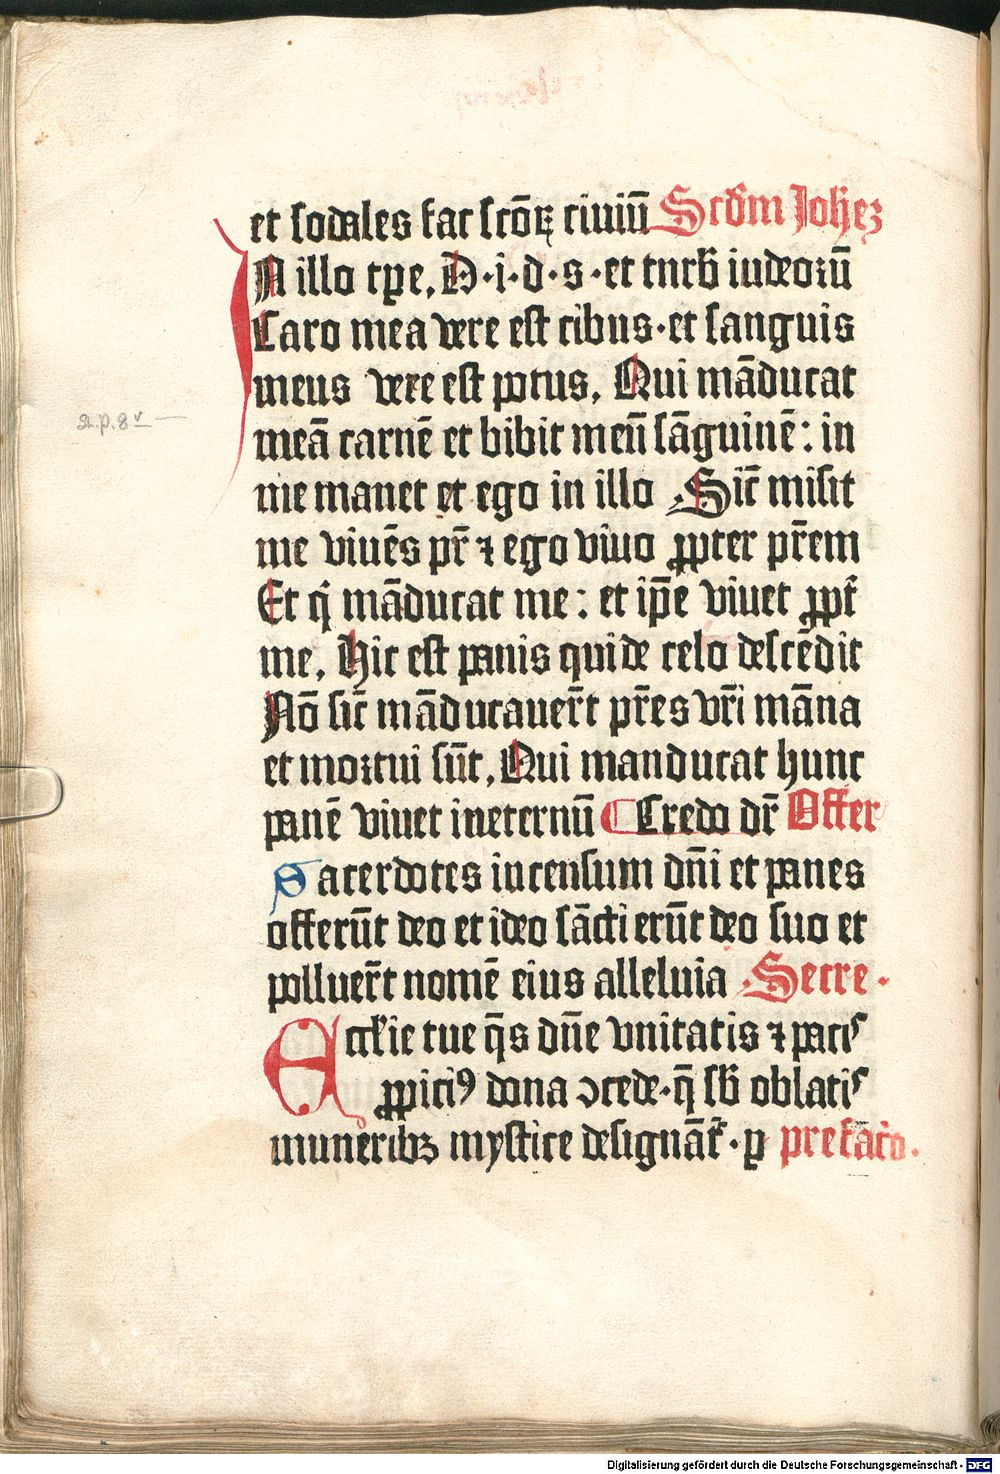 et sodales fac scōꝝ ciuiū Scd̄m Joh̄eꝫ
IN illo tꝑe. D·i·d·s·et turb̄ iudeoꝛū
Caro mea vere est cibus·et sanguis
meus vere est potus. Qui māducat
meā carnē et bibit meū sāguinē: in
me manet et ego in illo Sic̄ misit
me viuēs pr̄ ⁊ ego viuo ꝓpter pr̄em
Et q̇ māducat me: et ip̄e viuet ꝓpt̄
me. Hic est panis qui de celo descēdit
Nō sic̄ māducauer̄t pr̄es vr̄i māna
et moꝛtui sūt. Qui manducat hunc
panē viuet ineternū Credo dr̄ Offer
Sacerdotes incensum dn̄i et panes
offerūt deo et ideo sācti erūt deo suo et
polluer̄t nomē eius alleluia Secre·
Eccl̄ie tue q̄s dn̄e vnitatis ⁊ pacis
ꝓpiciꝰ dona ↄcede·q̄ sb̄ oblatis
muneribꝫ mystice designāt̄·ꝑ prefacō.
st. p. 8 v
Digitalisierung gefördert durch die Deutsche Forschungsgemeinschaft - DFG